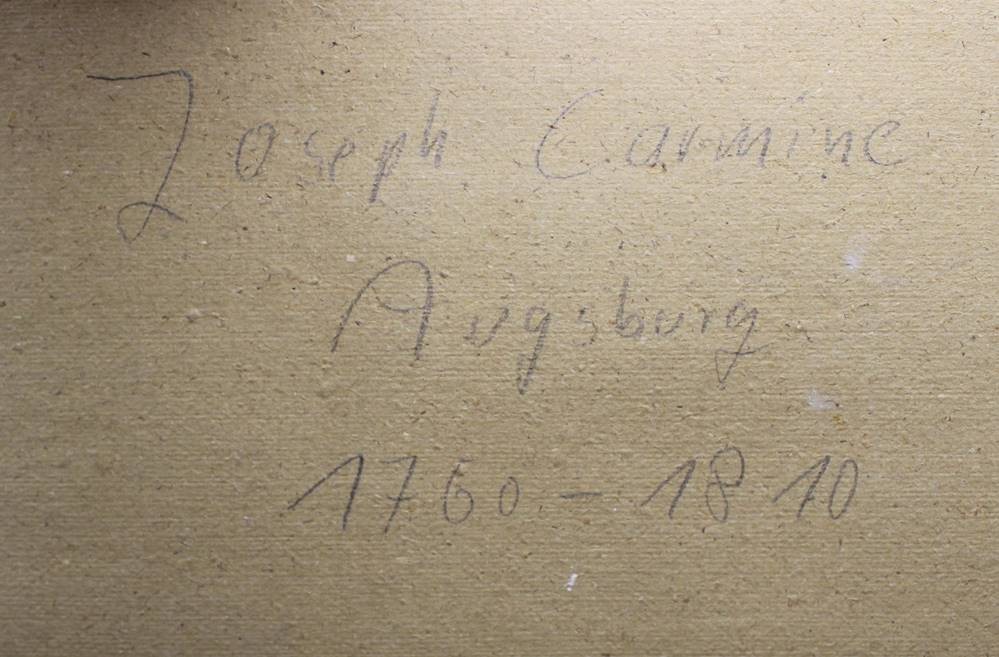 Joseph Carmine
Augsburg
1760 - 1810